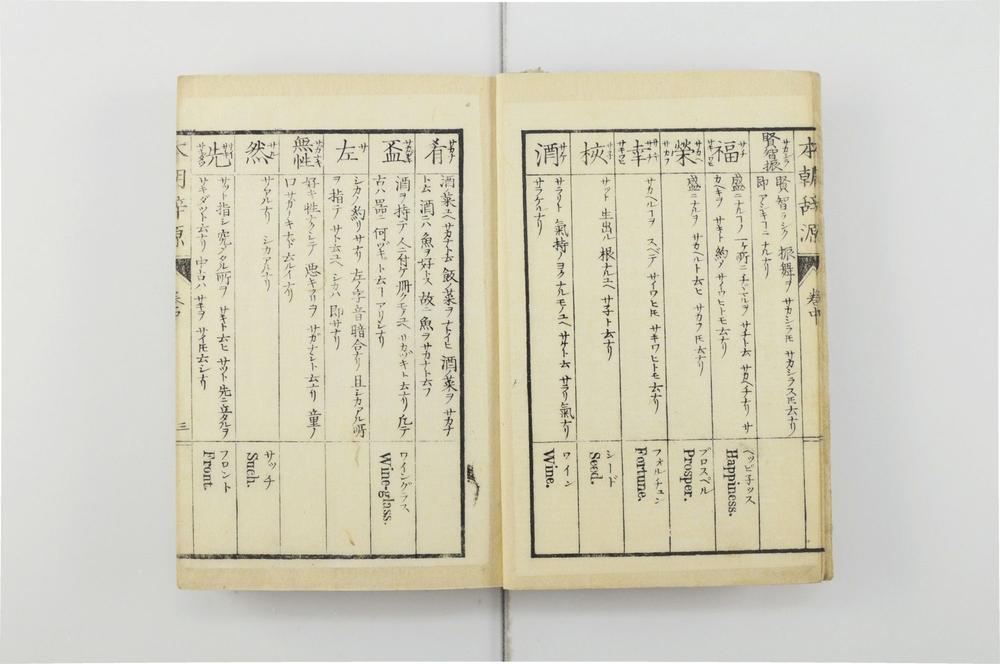 本朝辞源
卷中
賢智振
賢智ラシク 振舞ヲ サカシラスルト云ナリ
即 アシキコニナルナリ
福 サチ
盛ニナルコノ 一ヶ所ニ
カヘキヲ サキト約メ サイワヒトモ云ナリ
ヘッピ子ッス
Happiness.
榮 サカヘ
盛ニナルヲ サカヘルト云ヒ サカフ 云ナリ
プロスペル
Prosper.
幸
サカヘルコヲ スベテ サイワヒ サキワヒトモ云ナリ
フォルチュン
Fortune.
サット 生出ル 根ナルユヘ サ子ト云ナリ
シード
Seed.
酒 サケ
サラリト 氣持ノヨクナルモノユヘ サケト云 サラリ氣ナリ
サラケナリ
ワイン
Wine.
肴 サカナ
酒菜ユヘ サカナト云 飯ノ菜ヲ ナトイヒ 酒ノ菜ヲ サカナ
ト云 酒ニハ 魚ヲ好トス 故ニ 魚ヲサカナト云フ
盃
酒ヲ持テ 人ニ付ケ 册クモノユヘ サカヅキト云ナリ
古ハ 器ニ 何ヅキト云 アリシナリ
ワイングラス
Wine-glass.
左 サ
シカノ約リ サナリ 左ノ字音暗合ナリ 且シカアル所
ヲ指テ サト云ユヘ シカハ 即サナリ
無性
好キ性ナクシテ 悪キヲ サガナシト云ナリ 童ノ
口サガナキナド 云ルイナリ
然
サアルナリ シカアルナリ
サッチ
Such.
先
サット指シ 究メタル所ヲ サキト云ヒ サット先ニ立タルヲ
サキダツト云ナリ 中古ハ サキヲ サイ云シナリ
フロント
Front.
三